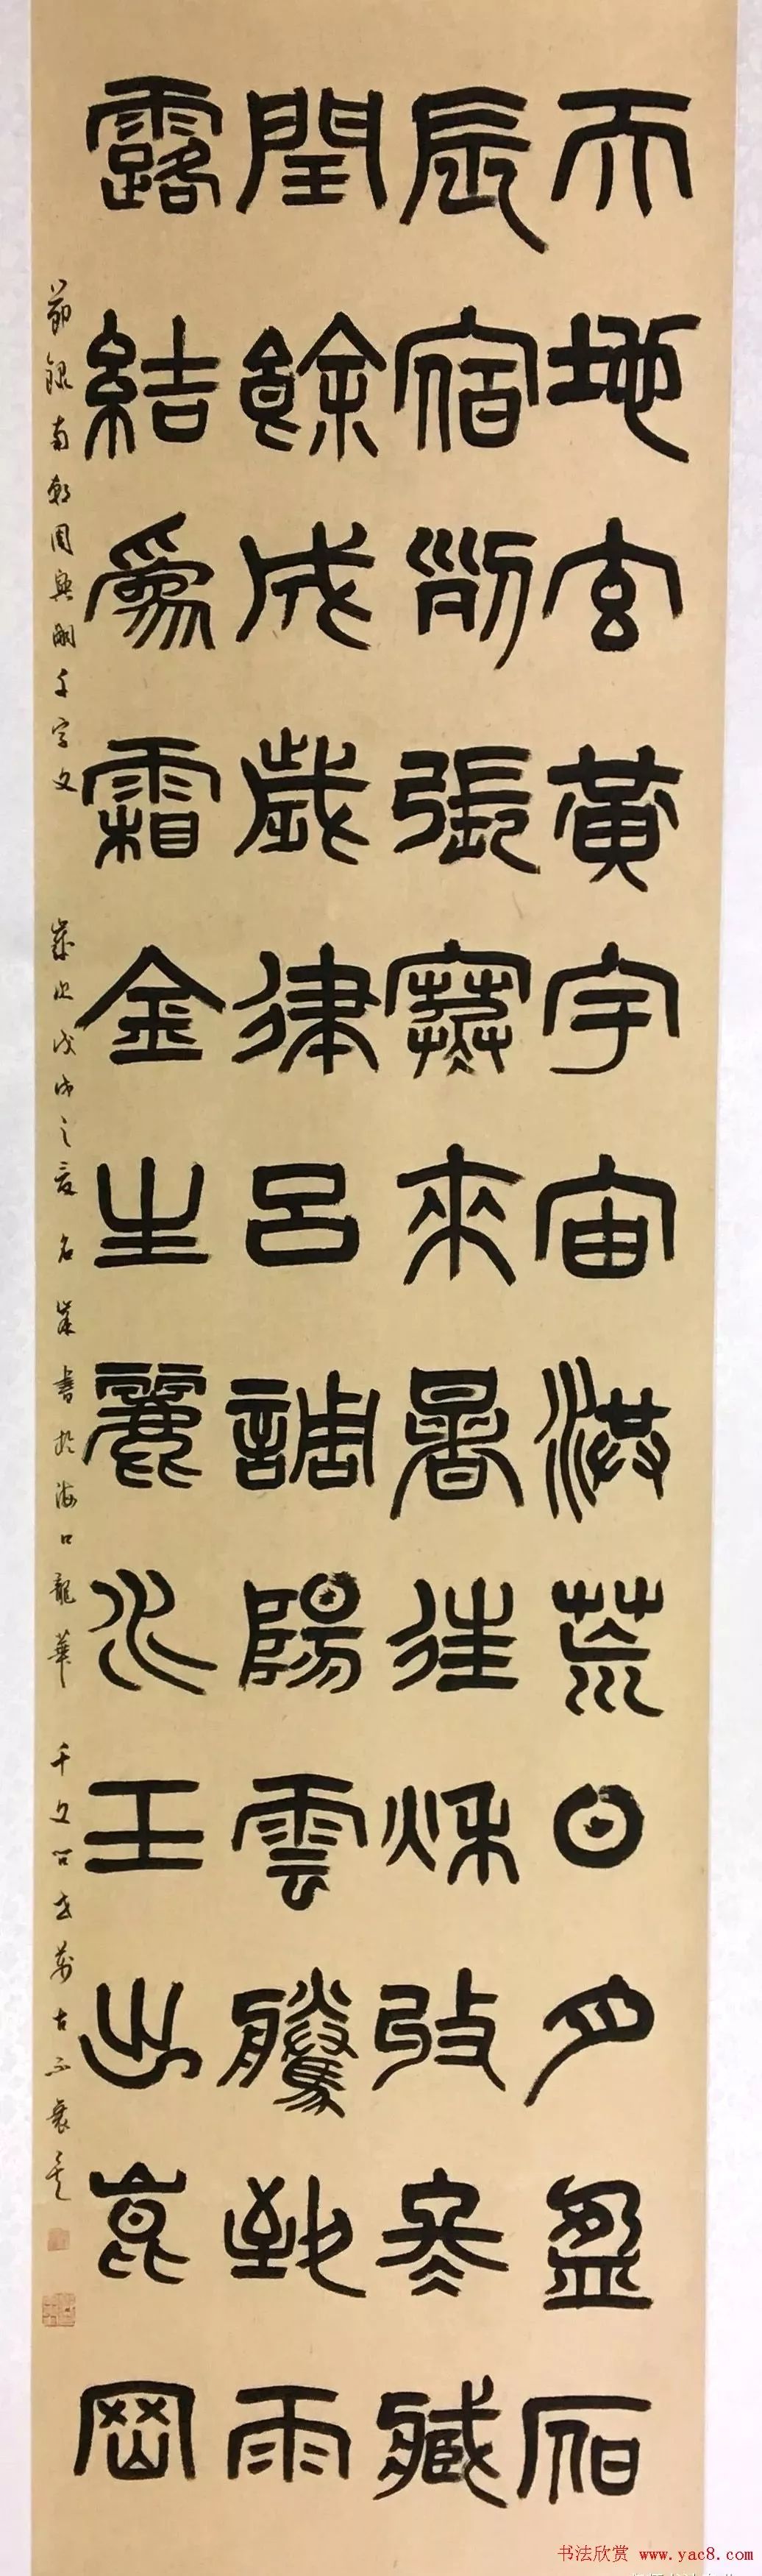 天地玄黃宇宙洪荒日月盈昃
辰宿列張寒來暑往秋收冬藏
閏餘成歲律呂調陽雲騰致雨
露結為霜金生麗水玉出崑岡
節錄南朝周興嗣千字文 歲次戊戌之夏名業書於海口龍華 千文
萬古不衰
书法欣赏 www.yac8.com